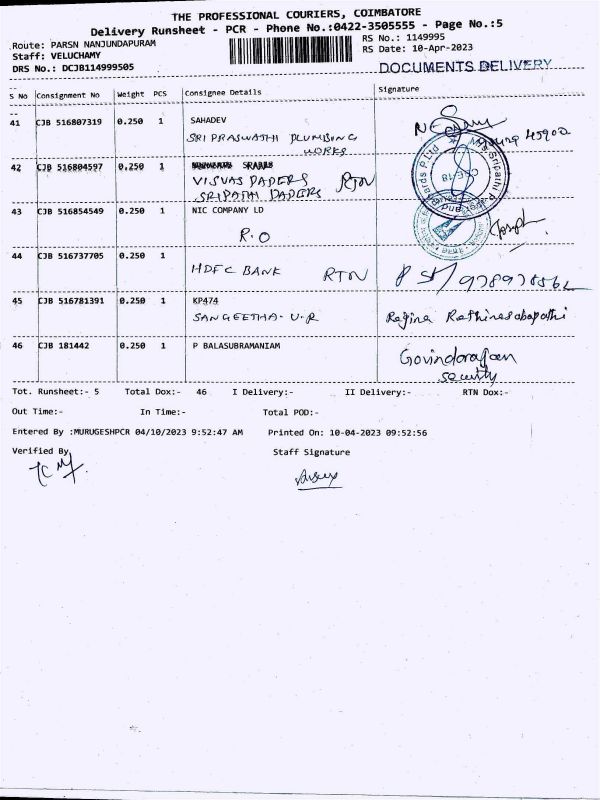 THE PROFESSIONAL COURIERS, COIMBATORE
Delivery Runsheet - PCR - Phone No.:0422-3505555 - Page No.:5
Route: PARSN NANJUNDAPURAM
RS No.: 1149995
Staff: VELUCHAMY
RS Date: 10-Apr-2023
DRS No.: DCJB114999505
DOCUMENTS DELIVERY
S No Consignment No Weight PCS Consignee Details Signature
41 CJB 516807319 0.250 1 SAHADEV
SRI PRASWATHI PLUMBING
WORKS
42 CJB 516804597 0.250 1
VISVAS PAPERS RTN
SRIPATHI PAPERS
43 CJB 516854549 0.250 1 NIC COMPANY LD
R.O Joseph
44 CJB 516737705 0.250 1
HDFC BANK RTN
45 CJB 516781391 0.250 1 KP474
SANGEETHA. U.R Regina Rathinasabapathi
46 CJB 181442 0.250 1 P BALASUBRAMANIAM
Govindarajan
security
Tot. Runsheet:- 5 Total Dox:- 46 I Delivery:- II Delivery:- RTN Dox:-
Out Time:- In Time:- Total POD:-
Entered By :MURUGESHPCR 04/10/2023 9:52:47 AM Printed On: 10-04-2023 09:52:56
Verified By Staff Signature